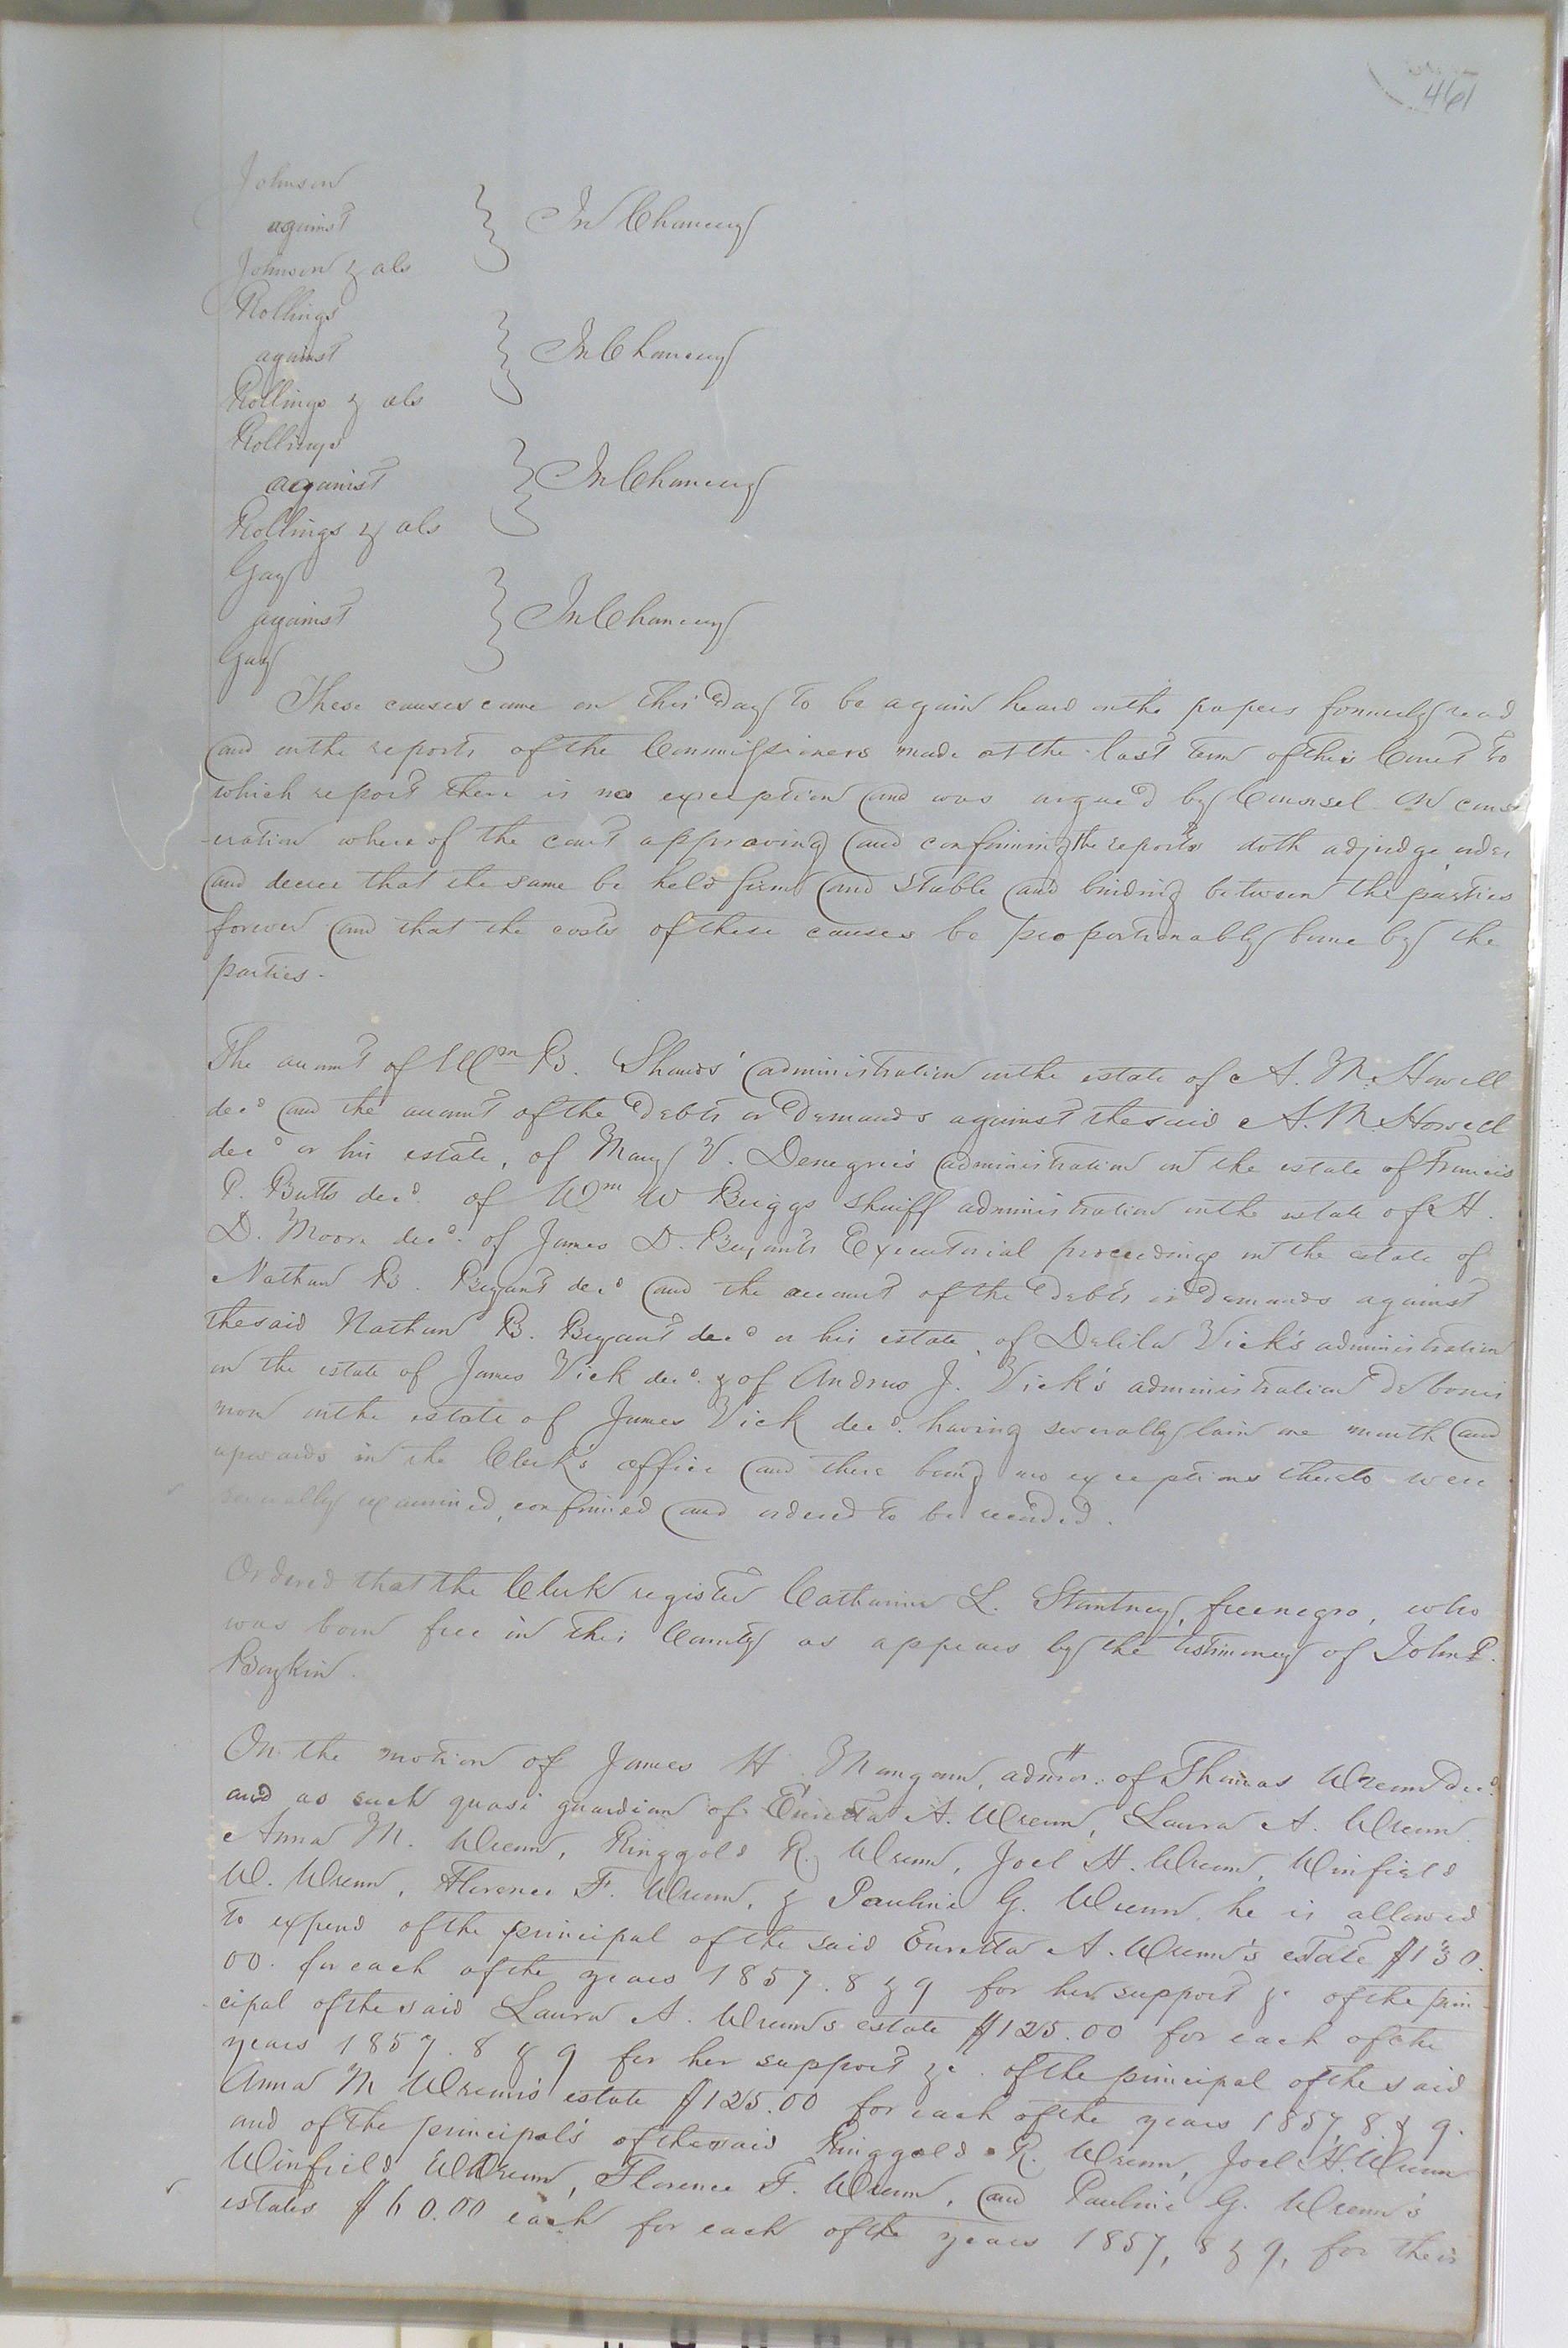 461
Johnson
against } In Chancery
Johnson & als
Rollings
against } In Chancery
Rollings & als
Rollings
against } In Chancery
Rollings & als
Gay
against } In Chancery
Gay
These causes came on this day to be again heard on the papers formerly read
and on the reports of the Commissioners made at the last term of this Court to
which report there is no exception and was argued by Counsel. On consid
-eration whereof the court approving and confirming the reports doth adjudge order
and decree that the same be held firm and stable and binding between the parties
forever and that the costs of these causes be proportionably borne by the
parties.
The account of Wm B. Shands' administration on the estate of A. M. Howell
decd and the account of the debts or demands against the said A. M. Howell
decd or his estate, of Mary V. Denegrie's administration on the estate of Francis
P. Butts decd. of Wm W Briggs sheriff administration on the estate of H.
D. Moore decd. of James D. Bryant's Executorial proceedings on the estate of
Nathan B. Bryant decd and the account of the debts or demands against
the said Nathan B. Bryant decd or his estate, of Delila Vick's administration
on the estate of James Vick decd. & of Andrew J. Vick's administration de bonis
non on the estate of James Vick decd. having severally lain one month and
upwards in the Clerk's office and there being no exceptions thereto were
severally examined, confirmed and ordered to be recorded.
Ordered that the Clerk register Catharine L. Stantney, free negro, who
was born free in this County as appears by the testimony of John P.
Boykin.
On the motion of James H. Mangam, admor. of Thomas Wrenn decd
and as such quasi guardian of Euretta A. Wrenn, Laura A. Wrenn
Anna M. Wrenn, Ringgold R. Wrenn, Joel H. Wrenn, Winfield
W. Wrenn, Florence F. Wrenn, & Pauline G. Wrenn, he is allowed
to expend of the principal of the said Euretta A. Wrenn's estate $130.
00. for each of the years 1857. 8 & 9 for her support &c of the prin-
cipal of the said Laura A. Wrenn's estate $125.00 for each of the
years 1857. 8 & 9 for her support &c. of the principal of the said
Anna M Wrenn's estate $125.00 for each of the years 1857, 8 & 9.
and of the principal's of the said Ringgold R. Wrenn, Joel H. Wrenn
Winfield W Wrenn, Florence F. Wrenn, and Pauline G. Wrenn's
estates $60.00 each for each of the years 1857, 8 & 9, for their